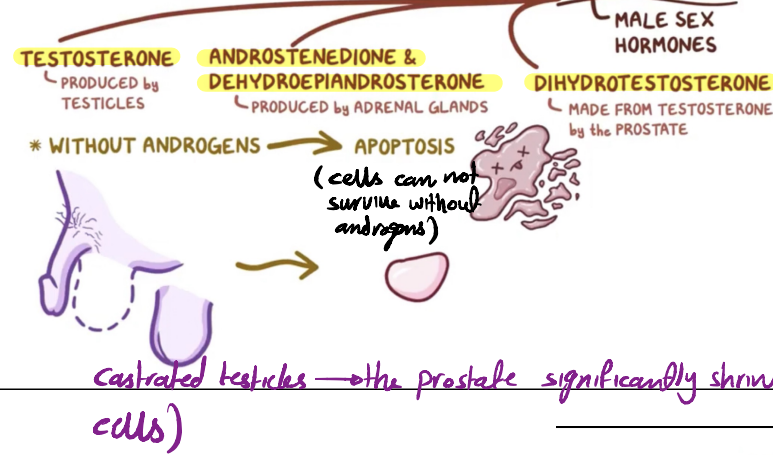 MALE SEX
HORMONES
TESTOSTERONE
PRODUCED by
TESTICLES
ANDROSTENEDIONE &
DEHYDROEPIANDROSTERONE
PRODUCED by ADRENAL GLANDS
DIHYDROTESTOSTERONE
MADE FROM TESTOSTERONE
by the PROSTATE
* WITHOUT ANDROGENS → APOPTOSIS
(cells can not
survive without
androgens)
Castrated testicles → the prostate significantly shrin
cells)